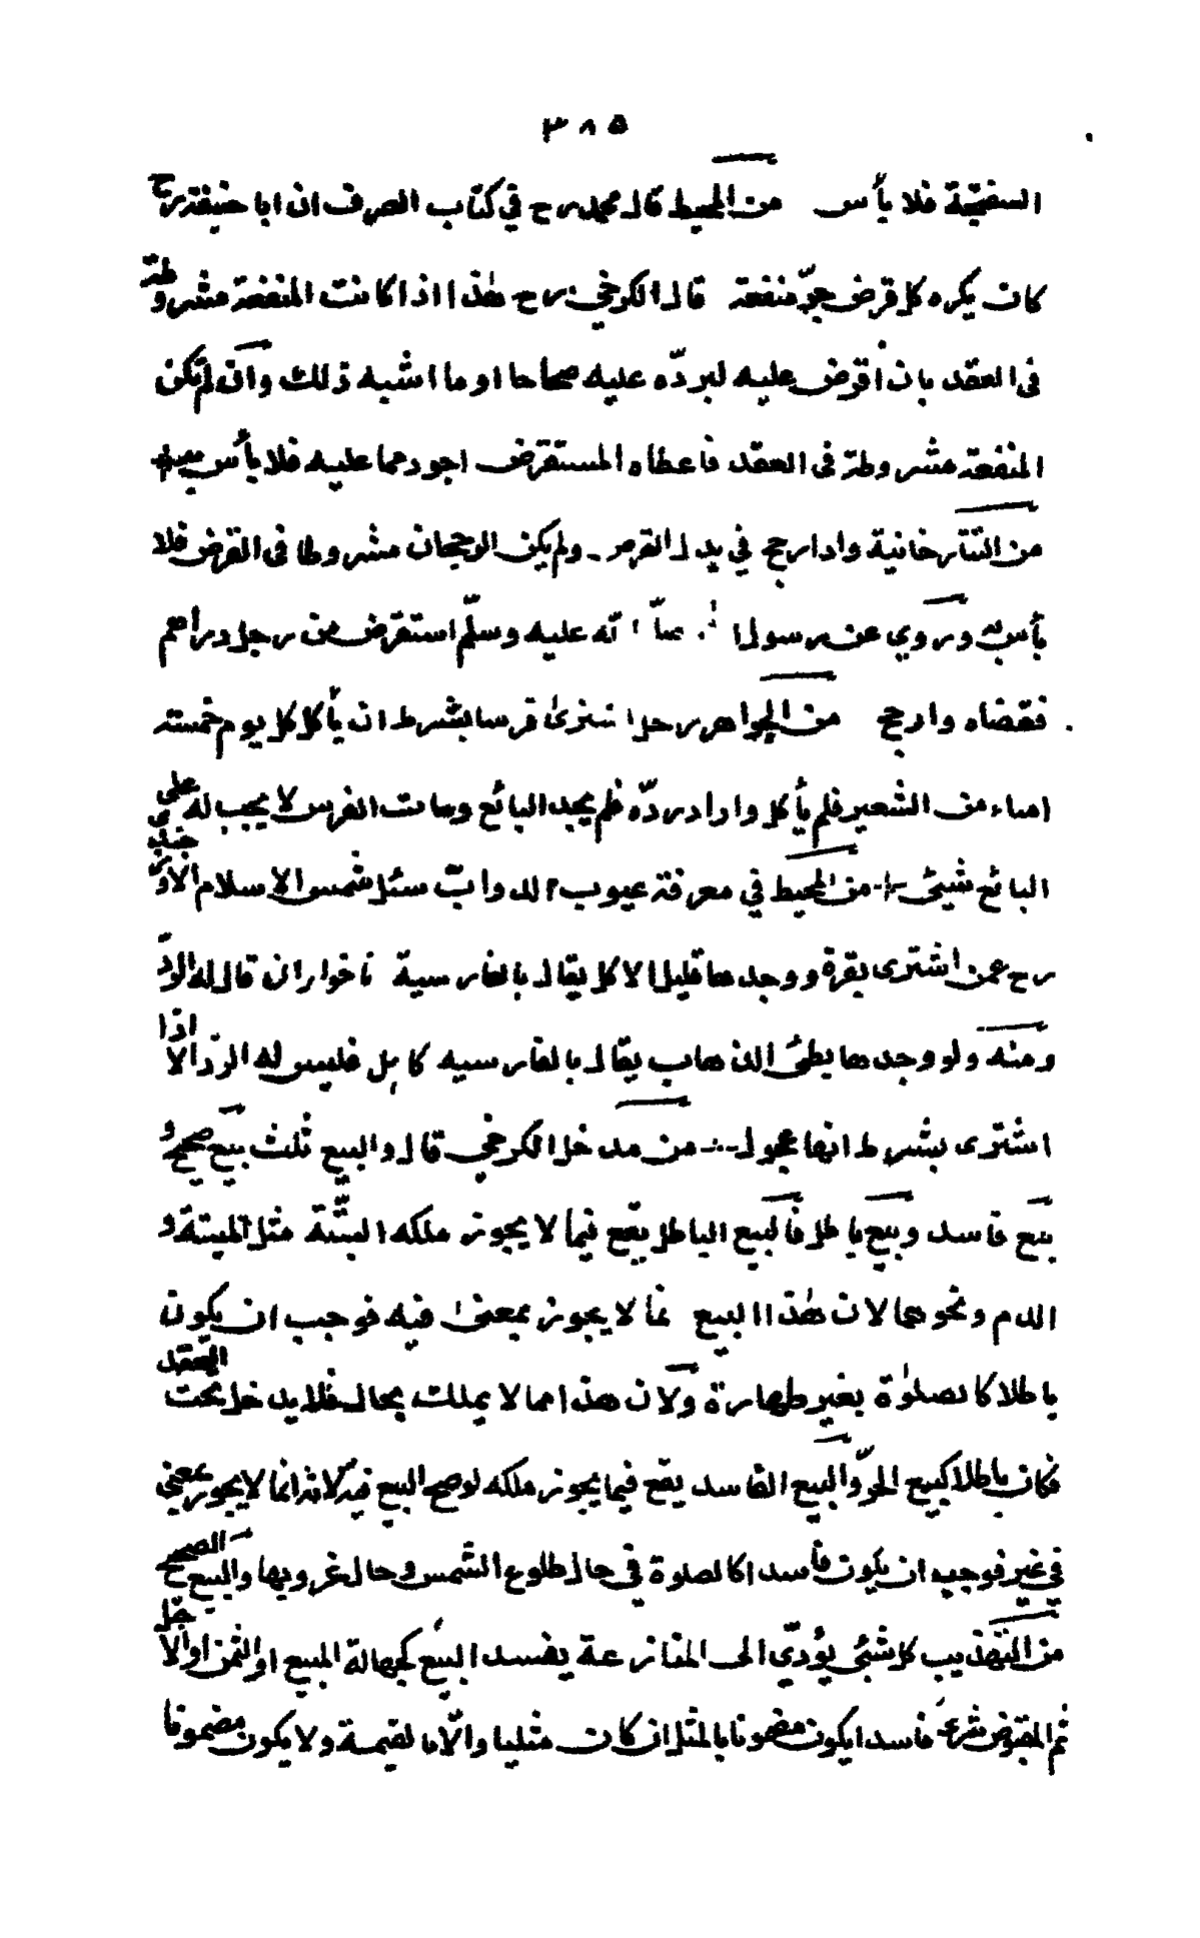 ٣٨٥
السفتجة فلا بأس من المحيط قال محمد رح في كتاب الصرف ان ابا حنيفة رح
كان يكره كل قرض جرّ منفعة قال الكرخي رح هذا اذا كانت المنفعة مشروطة
فى العقد بان أقرض عليه ليردّه عليه صحاحا او ما اشبه ذلك وان لم تكن
المنفعة مشروطة فى العقد فاعطاه المستقرض اجود مما عليه فلا بأس به
من التتارخانية واذا رجح في بدل القرض ولم يكن الرجحان مشروطا فى القرض فلا
بأس به وروي عن رسول الله صلّى الله عليه وسلّم استقرض من رجل دراهم
فقضاه وارجح من الجواهر رجل اشترى فرسا بشرط ان يأكل كل يوم خمسة
امناء من الشعير فلم يأكل واراد ردّه فلم يجد البائع وماتت الفرس لا يجب له على
البائع شيئ من المحيط في معرفة عيوب الدوابّ سئل شمس الاسلام الاوزجندي
رح عمن اشترى بقرة ووجدها قليل الاكل يقال بالفارسية ناخواران قال له الردّ
ومنه ولو وجدها بطئ الذهاب يقال بالفارسيه كاهل فليس له الردّ الا اذا
اشترى بشرط انها عجول من مدخل الكرخي قال والبيع ثلث بيع صحيح و
بيع فاسد وبيع باطل فالبيع الباطل يقع فيما لا يجوز ملكه البتّة مثل الميتة و
الدم ونحوهما لان هذا البيع انما لا يجوز بمعنى فيه فوجب ان يكون
باطلا كالصلوة بغير طهارة ولان هذا مما لا يملك بحال فلا يدخل تحت العقد
فكان باطلا كبيع الحرّ والبيع الفاسد يقع فيما يجوز ملكه لو صح البيع فيه لانه انما لا يجوز بمعنى
في غيره فوجب ان يكون فاسدا كالصلوة في حال طلوع الشمس وحال غروبها والبيع الصحيح
من التهذيب كل شئى يؤدّي الى المنازعة يفسد البيع كجهالة المبيع او الثمن او الاجل
ثم المقبوض شرعا فاسدا يكون مضمونا بالمثل ان كان مثليا والّا بالقيمة ولا يكون مضمونا